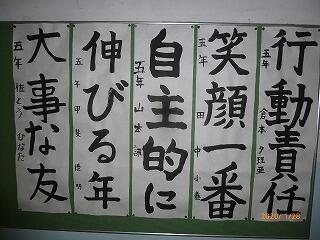 行動責任
五年
笑顔一番
五年 田中
自主的に
五年 山本
伸びる年
五年 甲斐
大事な友
五年 佐とう ひなた
2020/ 1/28